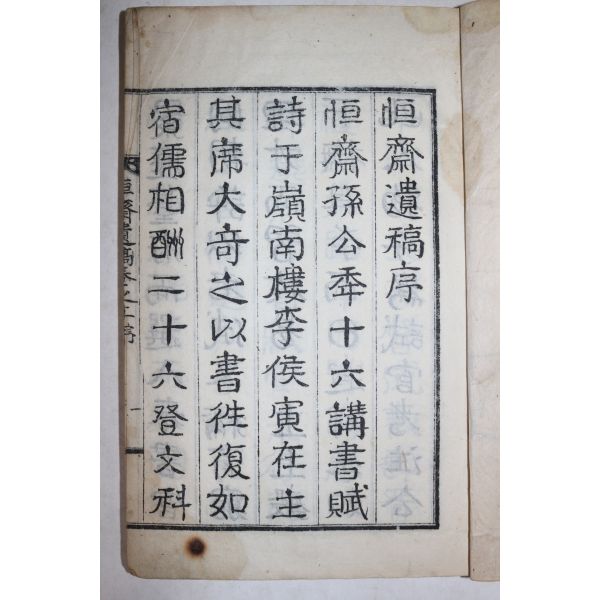 恒齋遺稿序
恒齋孫公年十六講書賦
詩于嶺南樓李侯寅在主
其席大竒之以書往復如
宿儒相酬二十六登文科
恒齋遺稿卷之上序
一